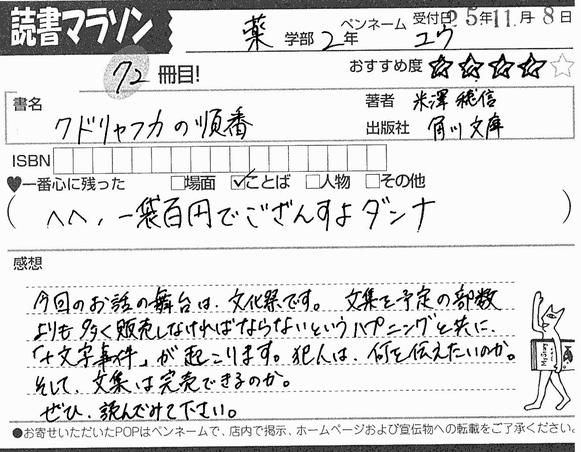 読書マラソン
薬 学部 2年 ペンネーム ユウ 受付日 25年11月8日
72 冊目!
おすすめ度 ★★★★☆
書名 クドリャフカの順番
著者 米澤穂信
出版社 角川文庫
ISBN
♥一番心に残った □場面 ☑ことば □人物 □その他
(へへ、一袋百円でござんすよダンナ)
感想
今回のお話の舞台は、文化祭です。文集を予定の部数
よりも多く販売しなければならないというハプニングと共に、
「十文字事件」が起こります。犯人は、何を伝えたいのか。
そして、文集は完売できるのか。
ぜひ、読んでみて下さい。
●お寄せいただいたPOPはペンネームで、店内で掲示、ホームページおよび宣伝物への転載をご了承ください